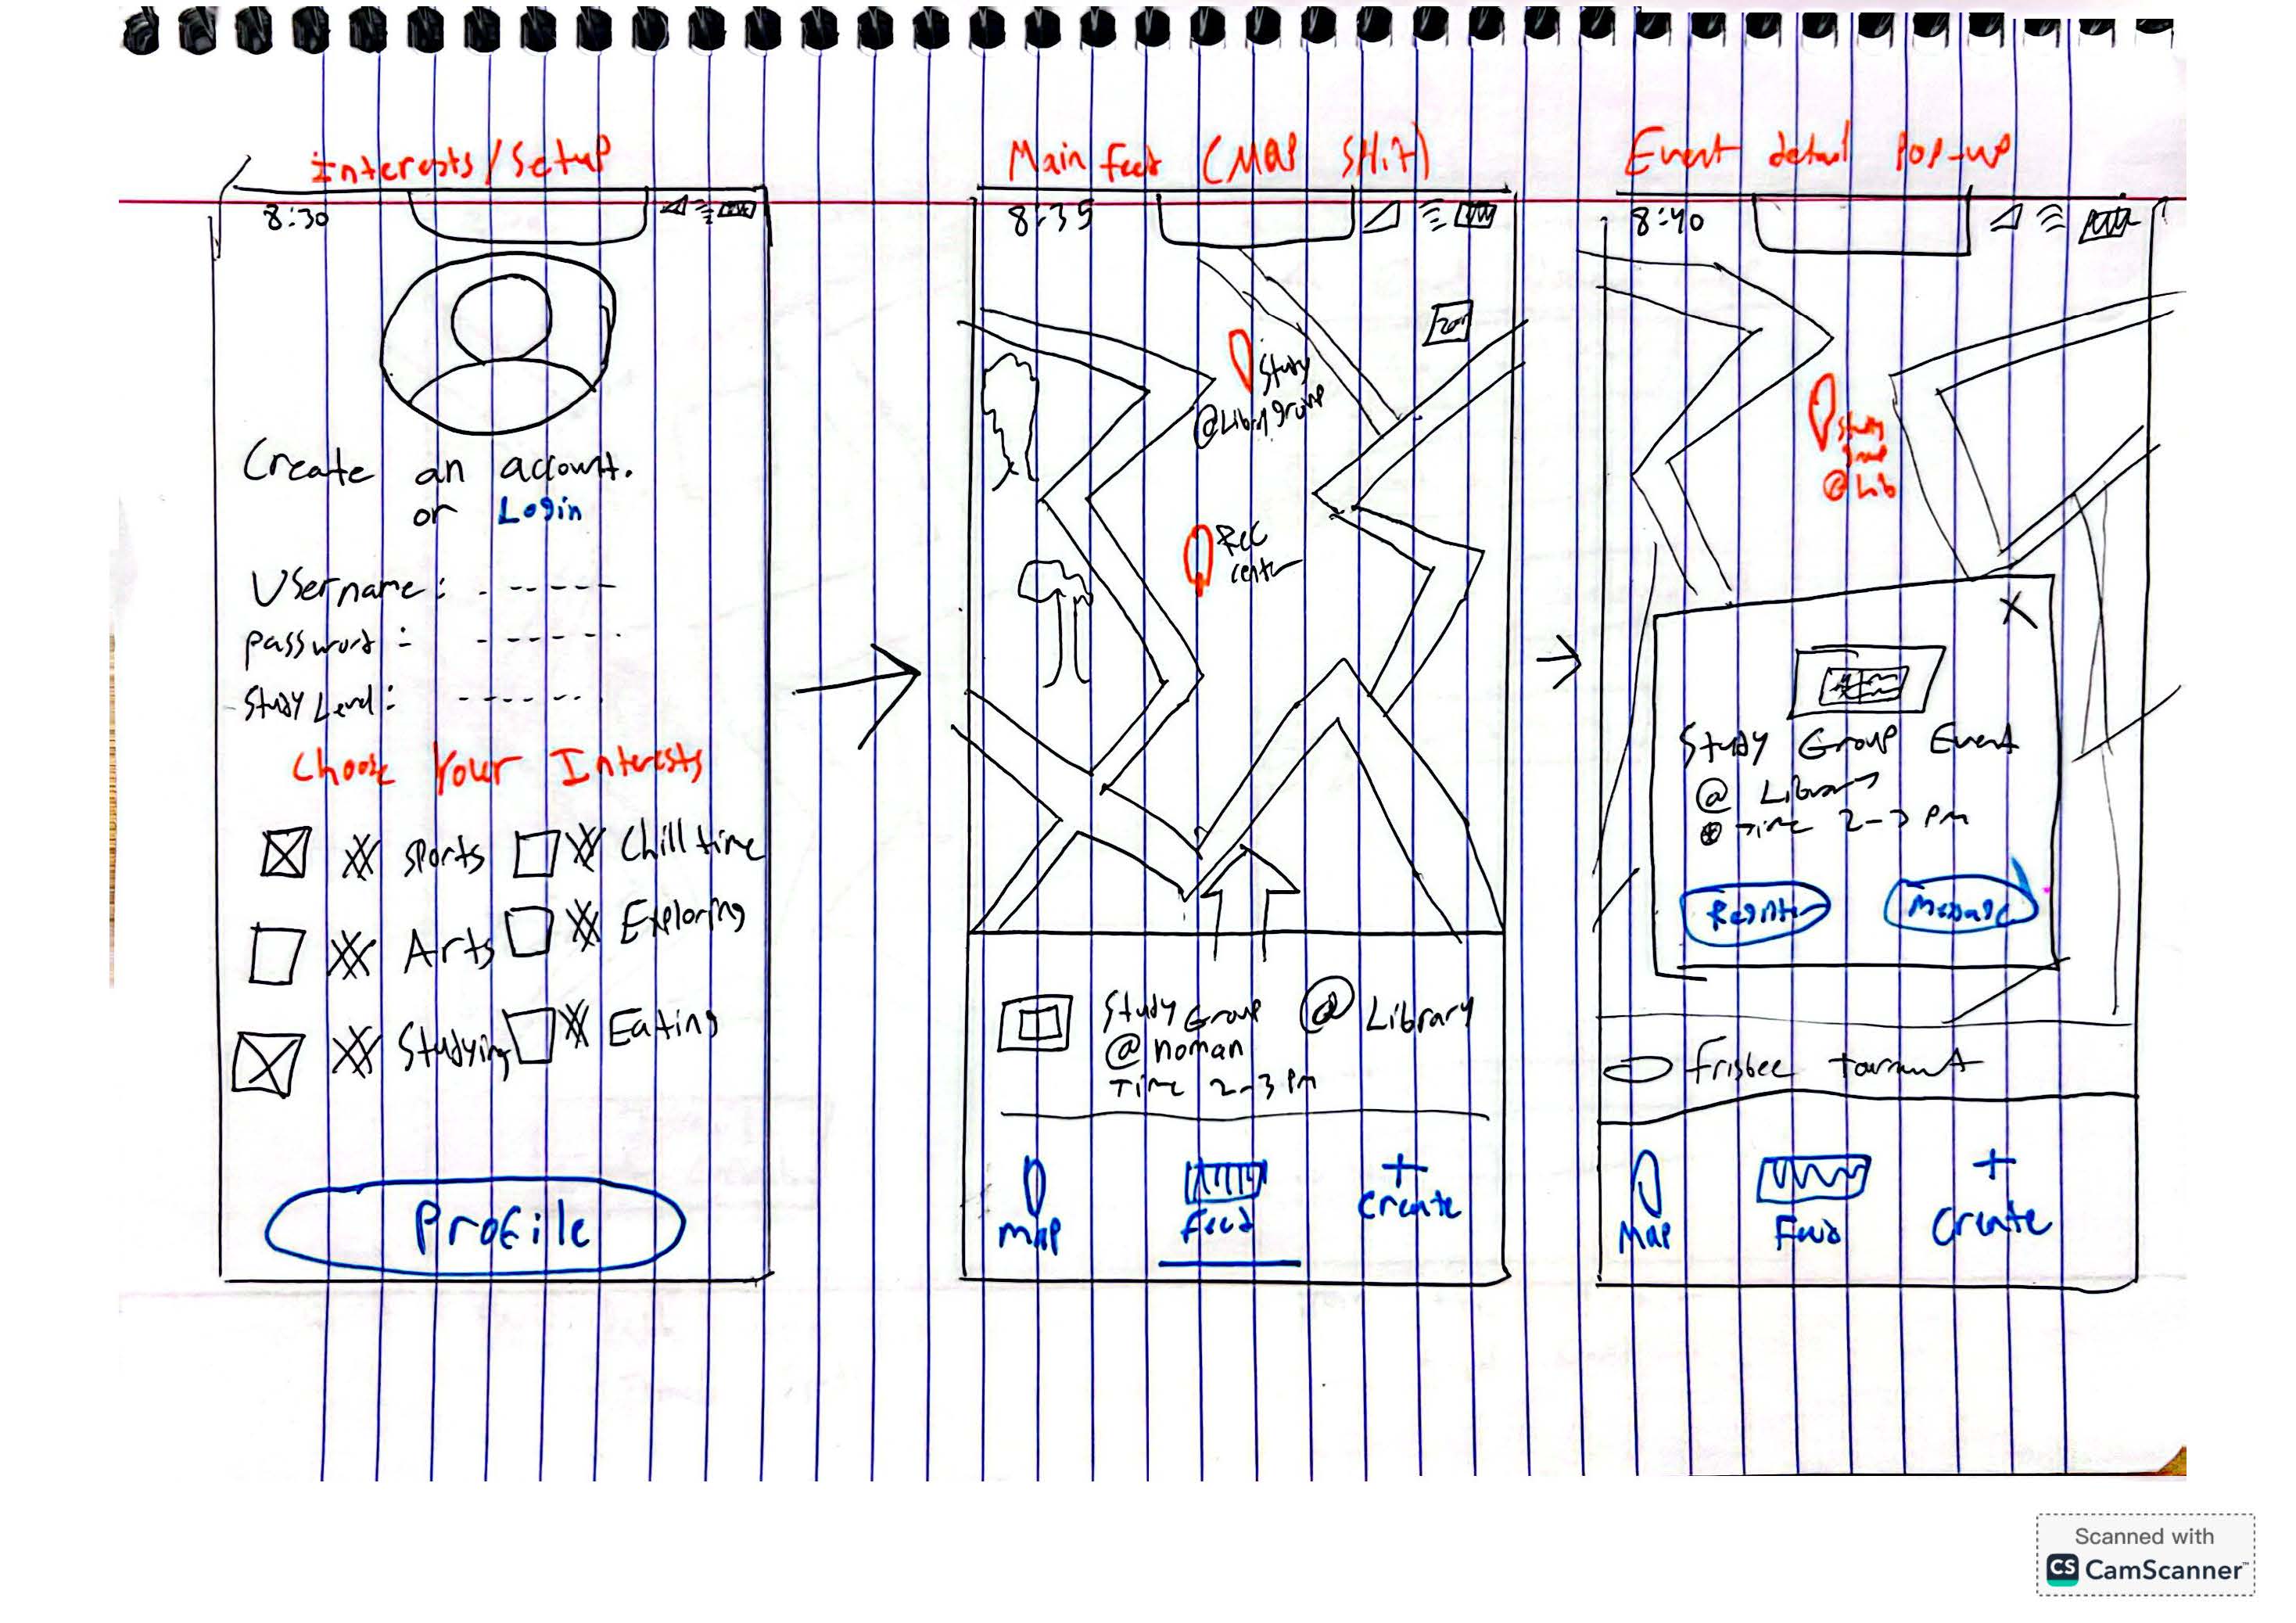 Interests/Setup
8:30
Create an account.
or Login
Username:
Password:
Study Level:
Choose Your Interests
Sports
Chill time
Arts
Exploring
Studying
Eating
Profile
Main feed (MAP
8:35
Study
@Library group
Rec
center
Study Group @ Library
@ noman
Time 2-3 PM
Map
Feed
+
Create
Event detail Pop-up
8:40
Study
@ Lib
X
Study Group Event
@ Library
Time 2-3 PM
Register
Message
Frisbee
Map
Feed
+
Create
Scanned with
CS CamScanner™